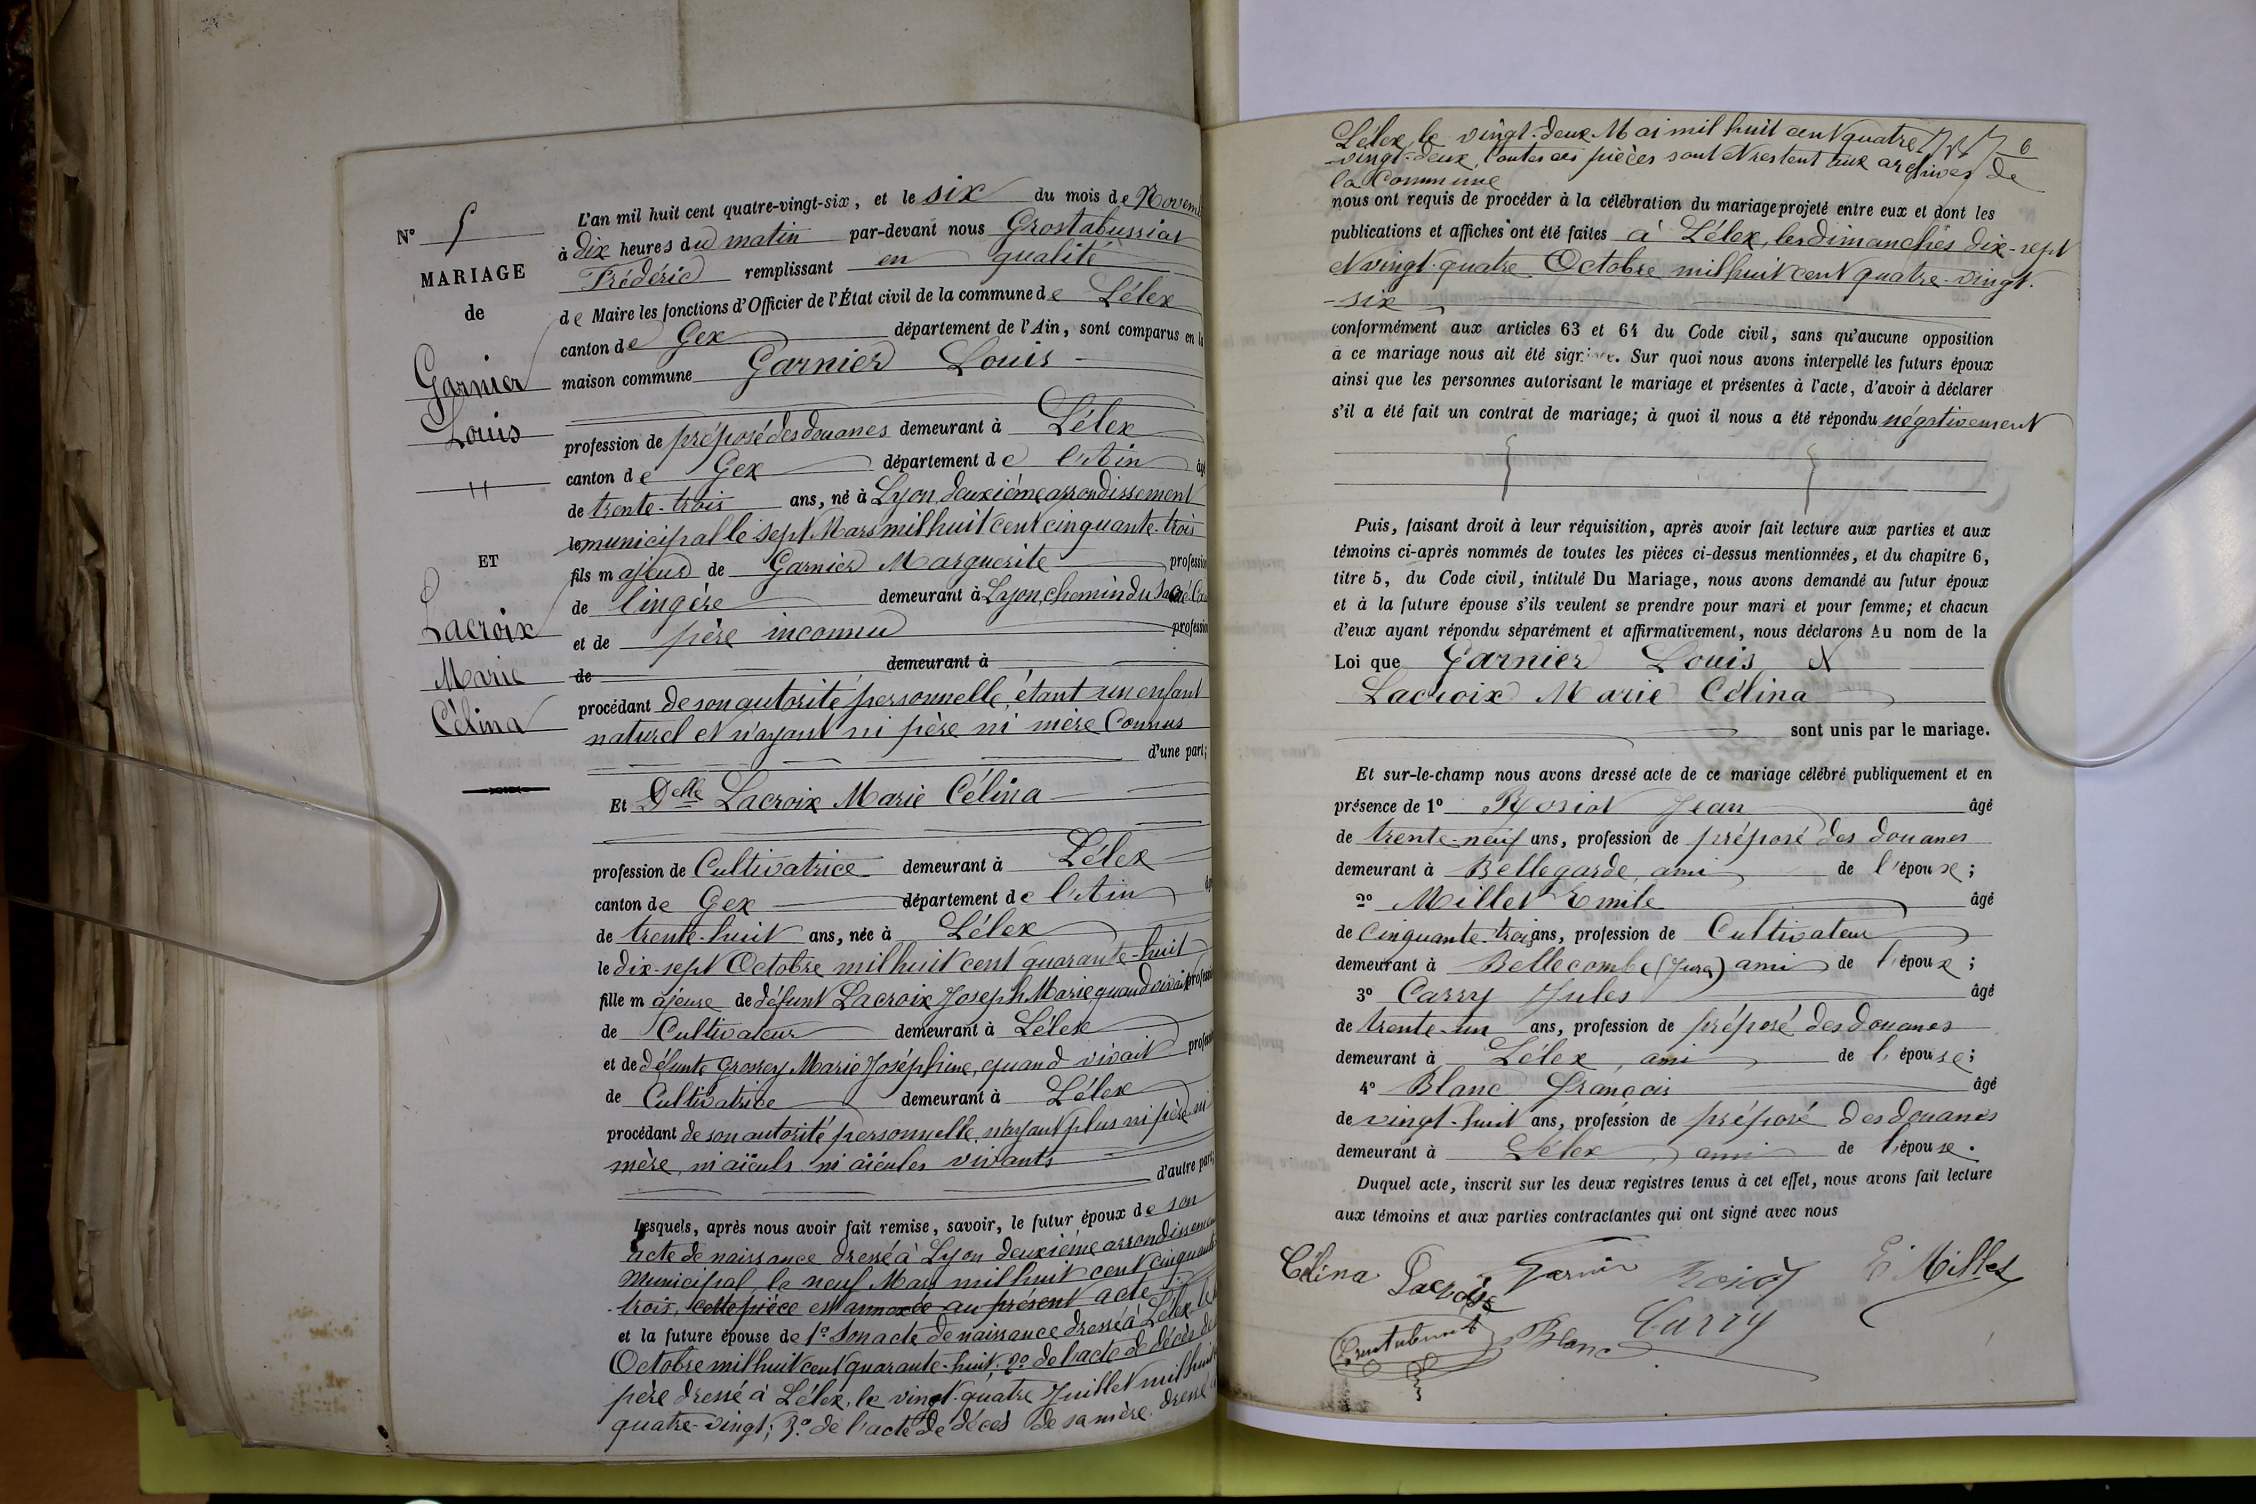 N° 5
MARIAGE
de
Garnier
Louis
ET
Lacroix
Marie
Célina
L'an mil huit cent quatre-vingt-six, et le six du mois de Novem
à dix heures du matin par-devant nous Grostabussiat
Frédéric remplissant en qualité
de Maire les fonctions d'Officier de l'État civil de la commune de Lélex
canton de Gex département de l'Ain, sont comparus en la
maison commune Garnier Louis
profession de préposé des douanes demeurant à Lélex
canton de Gex département de l'Ain âgé
de trente-trois ans, né à Lyon, deuxième arrondissement
le municipal le sept Mars mil huit cent cinquante-trois
fils majeur de Garnier Marguerite profession
de lingère demeurant à Lyon, chemin du
et de père inconnu profession
de demeurant à
procédant de son autorité personnelle, étant un enfant
naturel et n'ayant ni père ni mère connus
d'une part;
Et Delle Lacroix Marie Célina
profession de Cultivatrice demeurant à Lélex
canton de Gex département de l'Ain
de trente-huit ans, née à Lélex
le dix-sept Octobre mil huit cent quarante-huit
fille majeure de défunt Lacroix Joseph Marie, quand vivait profession
de Cultivateur demeurant à Lélex
et de défunte Grossey Marie Joséphine, quand vivait profession
de Cultivatrice demeurant à Lélex
procédant de son autorité personnelle, n'ayant plus ni père ni
mère, ni aïeuls ni aïeules vivants
d'autre part;
Lesquels, après nous avoir fait remise, savoir, le futur époux de son
acte de naissance dressé à Lyon deuxième arrondissement
municipal le neuf Mars mil huit cent cinquante
trois, cette pièce est annexée au présent acte
et la future épouse de 1° Son acte de naissance dressé à Lélex, le
Octobre mil huit cent quarante-huit; 2° de l'acte de décès de
père dressé à Lélex, le vingt-quatre Juillet mil huit
quatre-vingt; 3° de l'acte de décès de sa mère, dressé à
6
Lélex, le vingt-deux Mai mil huit cent quatre
-vingt-deux, toutes ces pièces sont et restent aux archives de
la Commune
nous ont requis de procéder à la célébration du mariage projeté entre eux et dont les
publications et affiches ont été faites à Lélex, les dimanches dix-sept
et vingt-quatre Octobre mil huit cent quatre-vingt-
-six
conformément aux articles 63 et 64 du Code civil, sans qu'aucune opposition
à ce mariage nous ait été signifiée. Sur quoi nous avons interpellé les futurs époux
ainsi que les personnes autorisant le mariage et présentes à l'acte, d'avoir à déclarer
s'il a été fait un contrat de mariage; à quoi il nous a été répondu négativement
Puis, faisant droit à leur réquisition, après avoir fait lecture aux parties et aux
témoins ci-après nommés de toutes les pièces ci-dessus mentionnées, et du chapitre 6,
titre 5, du Code civil, intitulé Du Mariage, nous avons demandé au futur époux
et à la future épouse s'ils veulent se prendre pour mari et pour femme; et chacun
d'eux ayant répondu séparément et affirmativement, nous déclarons Au nom de la
Loi que Garnier Louis et
Lacroix Marie Célina
sont unis par le mariage.
Et sur-le-champ nous avons dressé acte de ce mariage célébré publiquement et en
présence de 1° Rosiot Jean âgé
de trente-neuf ans, profession de préposé des douanes
demeurant à Bellegarde, ami de l'épouse;
2° Millet Emile âgé
de cinquante-trois ans, profession de Cultivateur
demeurant à Bellecombe (Jura) ami de l'époux;
3° Carry Jules âgé
de trente-un ans, profession de préposé des douanes
demeurant à Lélex, ami de l'épouse;
4° Blanc François âgé
de vingt-huit ans, profession de préposé des douanes
demeurant à Lélex, ami de l'épouse.
Duquel acte, inscrit sur les deux registres tenus à cet effet, nous avons fait lecture
aux témoins et aux parties contractantes qui ont signé avec nous
Célina Lacroix Garnier Rosiot E Millet
Blanc Carry